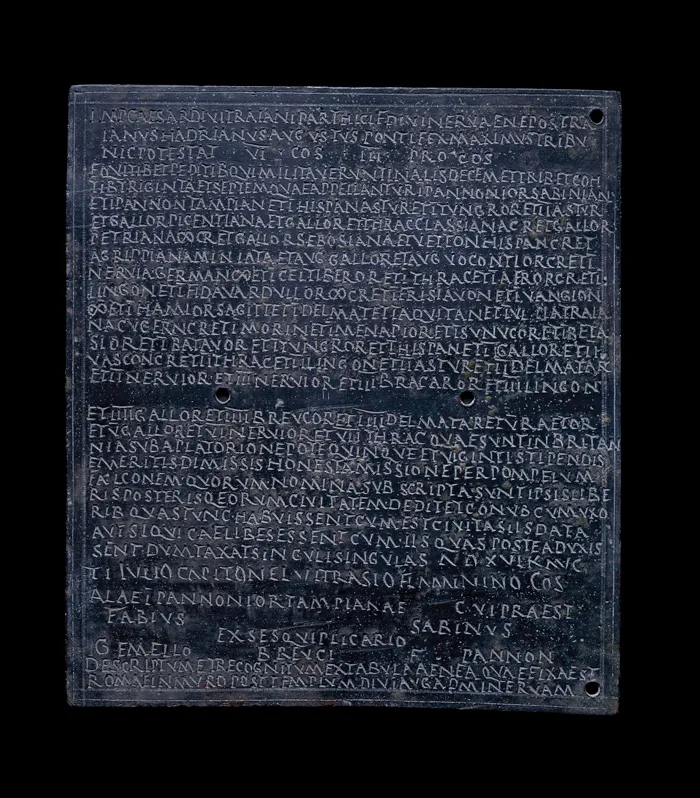 IMP CAESAR DIVI TRAIANI PARTHICI F DIVI NERVAE NEPOS TRA
IANVS HADRIANVS AVGVSTVS PONTIFEX MAXIMVS TRIBV
NIC POTESTAT VI COS III PROCOS
EQVITIB ET PEDITIB QVI MILITAVERVNT IN ALIS DECEM ET TRIB ET COH
TIB TRIGINTA ET SEPTEM QVAE APPELLANTVR I PANNONIOR SABINIAN
ET I PANNON TAMPIAN ET I HISPAN ASTVR ET I TVNGROR ET II ASTVR
ET GALLOR PICENTIANA ET GALLOR ET THRAC CLASSIANA C R ET GALLOR
PETRIANA ∞ C R ET GALLOR SEBOSIANA ET VETTON HISPAN C R ET
AGRIPPIANA MINIATA ET AVG GALLOR ET AVG VOCONTIOR C R ET I
NERVIA GERMANO ∞ ET I CELTIBEROR ET I THRAC ET I AFROR C R ET I
LINGON ET I FID VARDVLLOR ∞ C R ET I FRISIAVON ET I VANGION
∞ ET I HAMIOR SAGITT ET I DELMAT ET I AQVITAN ET I VLPIA TRAIA
NA CVGERN C R ET I MORIN ET I MENAPIOR ET I SVNVCOR ET I BETA
SIOR ET I BATAVOR ET I TVNGROR ET I HISPAN ET II GALLOR ET II
VASCON C R ET II THRAC ET II LINGON ET II ASTVR ET II DELMATAR
ET II NERVIOR ET III NERVIOR ET III BRACAROR ET IIII LINGON
ET IIII GALLOR ET IIII BREVCOR ET IIII DELMATAR ET V RAETOR
ET V GALLOR ET VI NERVIOR ET VII THRAC QVAE SVNT IN BRITAN
NIA SVB A PLATORIO NEPOTE QVINQVE ET VIGINTI STIPENDIS
EMERITIS DIMISSIS HONESTA MISSIONE PER POMPEIVM
FALCONEM QVORVM NOMINA SVBSCRIPTA SVNT IPSIS LIBE
RIS POSTERISQ EORVM CIVITATEM DEDIT ET CONVB CVM VXO
RIB QVAS TVNC HABVISSENT CVM EST CIVITAS IIS DATA
AVT SI QVI CAELIBES ESSENT CVM IIS QVAS POSTEA DVXIS
SENT DVMTAXAT SINGVLI SINGVLAS A D XVI K AVG
TI IVLIO CAPITONE L VITRASIO FLAMININO COS
ALAE I PANNONIOR TAMPIANAE C VI PRAEST
FABIVS SABINVS
EX SESQVIPLICARIO
GEMELLO BREVCI F PANNON
DESCRIPTVM ET RECOGNITVM EX TABVLA AENEA QVAE FIXA EST
ROMAE IN MVRO POST TEMPLVM DIVI AVG AD MINERVAM